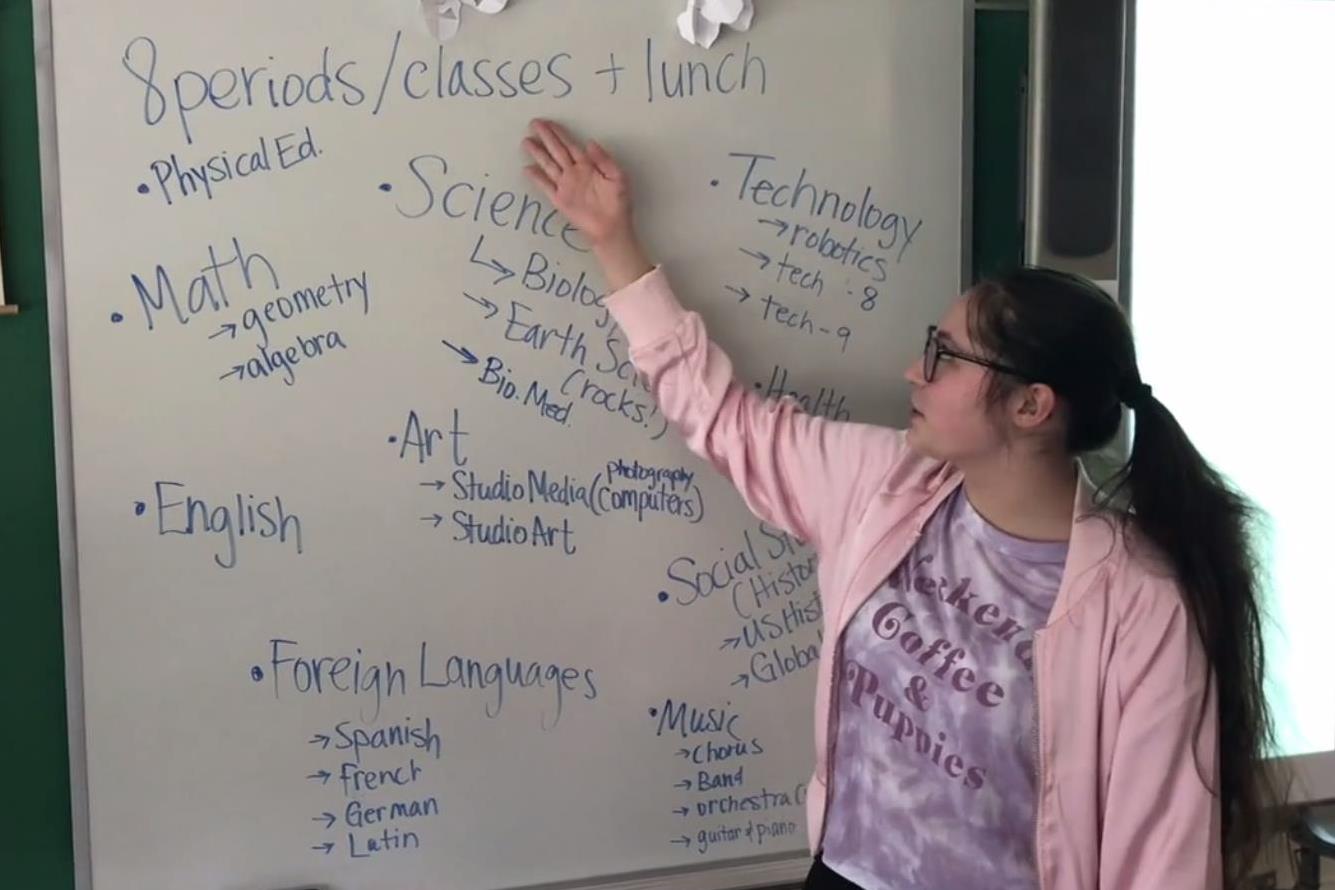 8 periods/classes + lunch
• Physical Ed.
• Math
→ geometry
→ algebra
• English
• Science
↳ Biology
→ Earth
(rocks!)
→ Bio. Med.
• Art
→ Studio Media (photography computers)
→ Studio Art
• Foreign Languages
→ Spanish
→ French
→ German
→ Latin
• Technology
→ robotics
→ tech - 8
→ tech - 9
• Health
• Social
→ US Hist
→ Global
• Music
→ Chorus
→ Band
→ orchestra
→ guitar & piano
Weekend
Coffee
&
Puppies